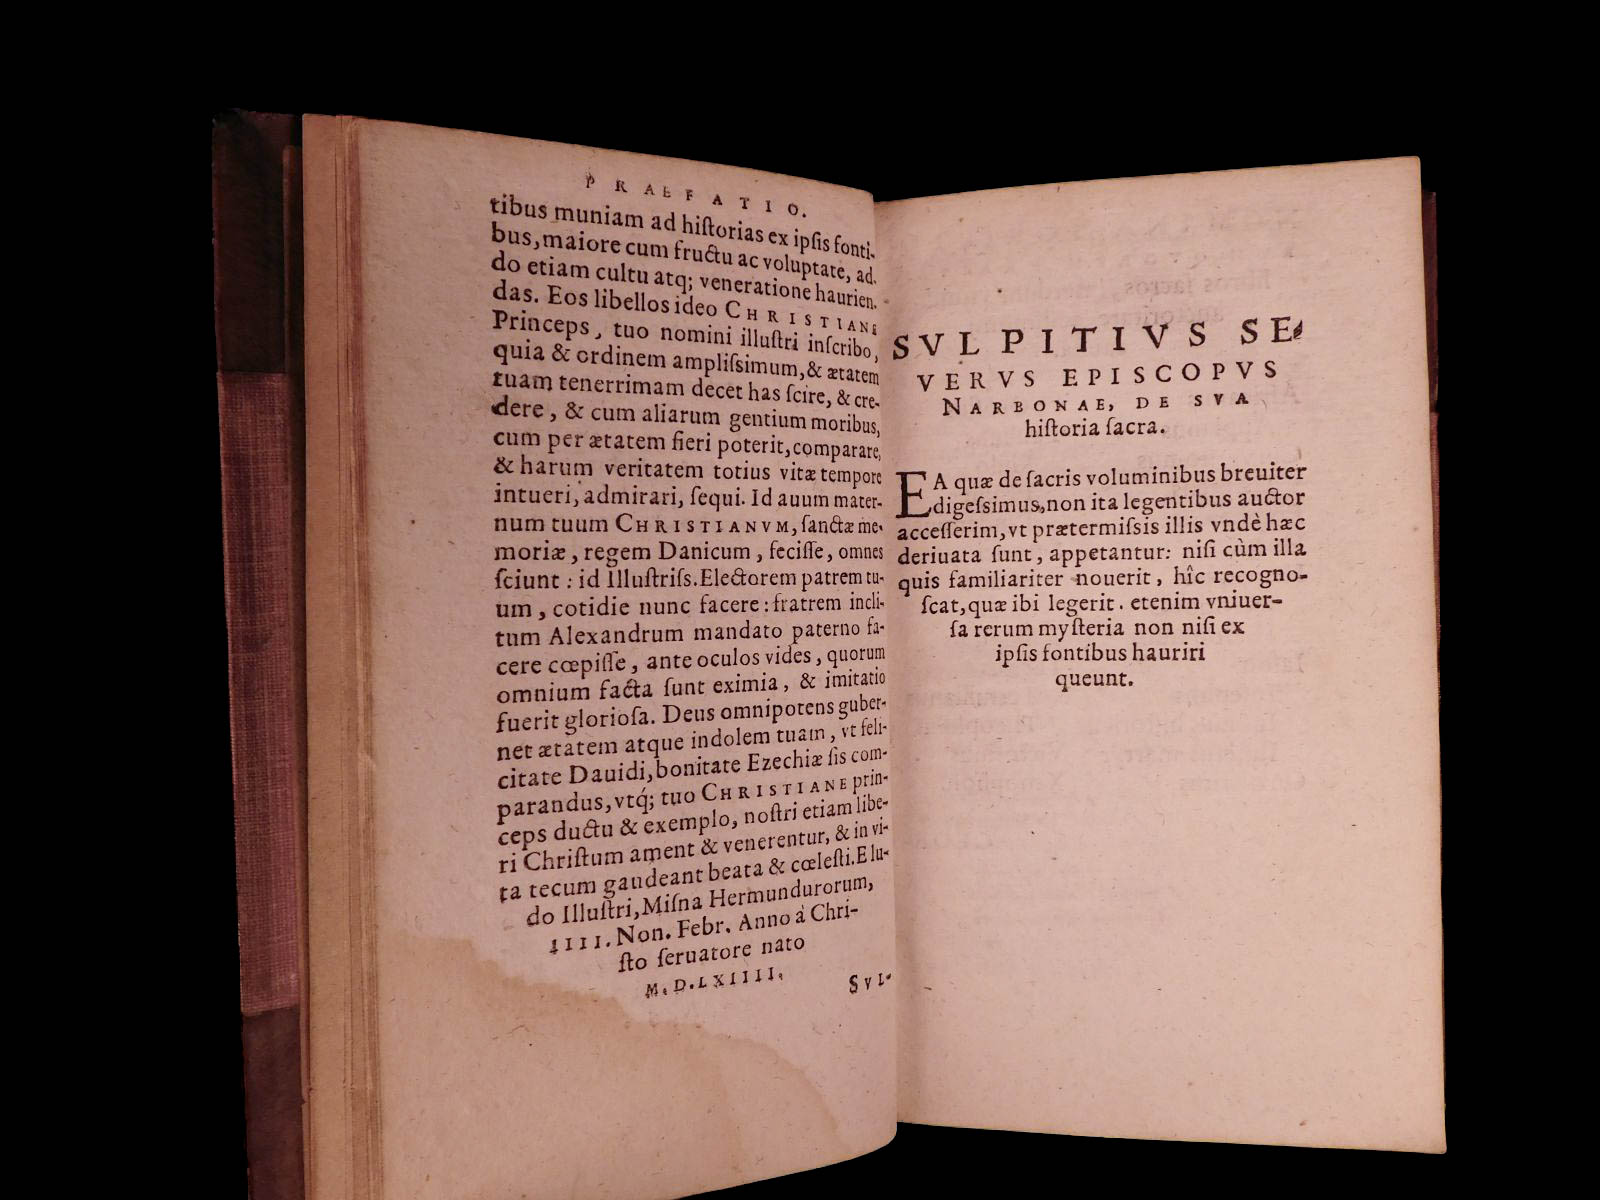 PRAEFATIO.
tibus muniam ad hiſtorias ex ipſis fonti-
bus, maiore cum fructu ac voluptate, ad-
do etiam cultu atq; veneratione haurien-
das. Eos libellos ideo CHRISTIANE
Princeps, tuo nomini illuſtri inſcribo,
quia & ordinem ampliſsimum, & ætatem
tuam tenerrimam decet has ſcire, & cre-
dere, & cum aliarum gentium moribus,
cum per ætatem fieri poterit, comparare,
& harum veritatem totius vitæ tempore
intueri, admirari, ſequi. Id auum mater-
num tuum CHRISTIANVM, ſanctæ me-
moriæ, regem Danicum, feciſſe, omnes
ſciunt: id Illuſtriſs. Electorem patrem tu-
um, cotidie nunc facere: fratrem incli-
tum Alexandrum mandato paterno fa-
cere cœpiſſe, ante oculos vides, quorum
omnium facta ſunt eximia, & imitatio
fuerit glorioſa. Deus omnipotens guber-
net ætatem atque indolem tuam, vt feli-
citate Dauidi, bonitate Ezechiæ ſis com-
parandus, vtq́; tuo CHRISTIANE prin-
ceps ductu & exemplo, noſtri etiam libe-
ri Chriſtum ament & venerentur, & in vi-
ta tecum gaudeant beata & cœleſti. E lu-
do Illuſtri, Miſna Hermundurorum,
IIII. Non. Febr. Anno à Chri-
ſto ſeruatore nato
M.D.LXIIII.
SVL-
SVLPITIVS SE-
VERVS EPISCOPVS
NARBONAE, DE SVA
hiſtoria ſacra.
EA quæ de ſacris voluminibus breuiter
digeſsimus, non ita legentibus auctor
acceſſerim, vt prætermiſsis illis vndè hæc
deriuata ſunt, appetantur: niſi cùm illa
quis familiariter nouerit, hîc recogno-
ſcat, quæ ibi legerit. etenim vniuer-
ſa rerum myſteria non niſi ex
ipſis fontibus hauriri
queunt.